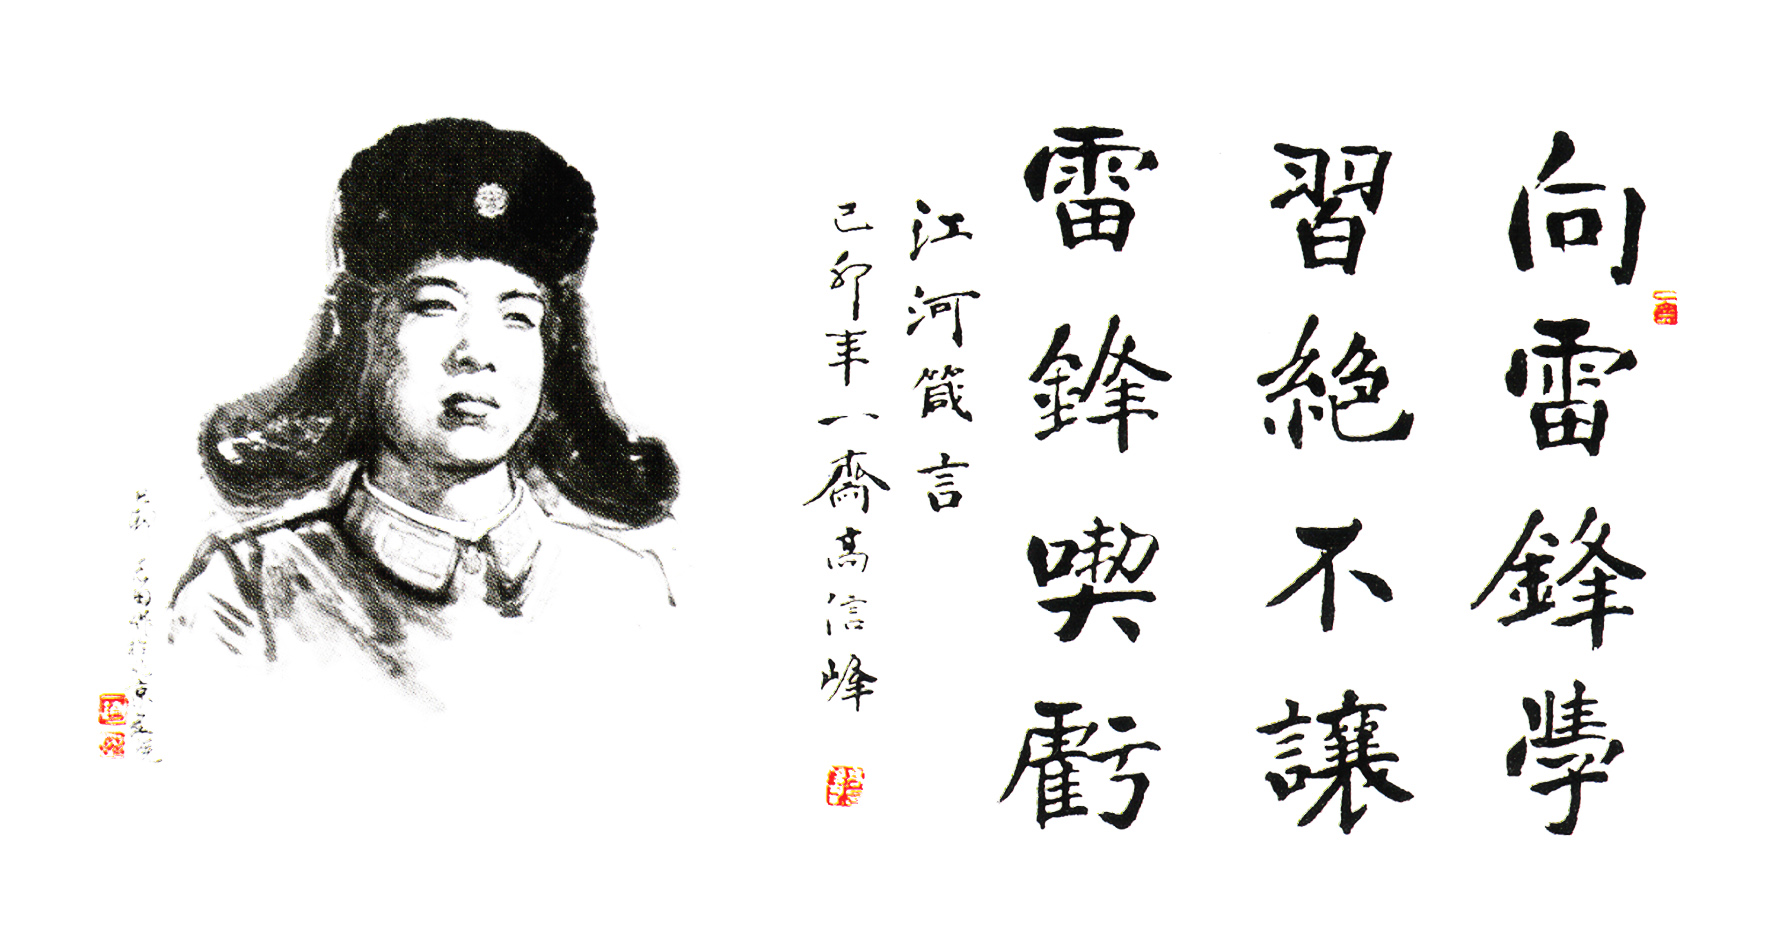 向雷鋒學
習絕不讓
雷鋒喫虧
江河箴言
己卯年一齋高信峰